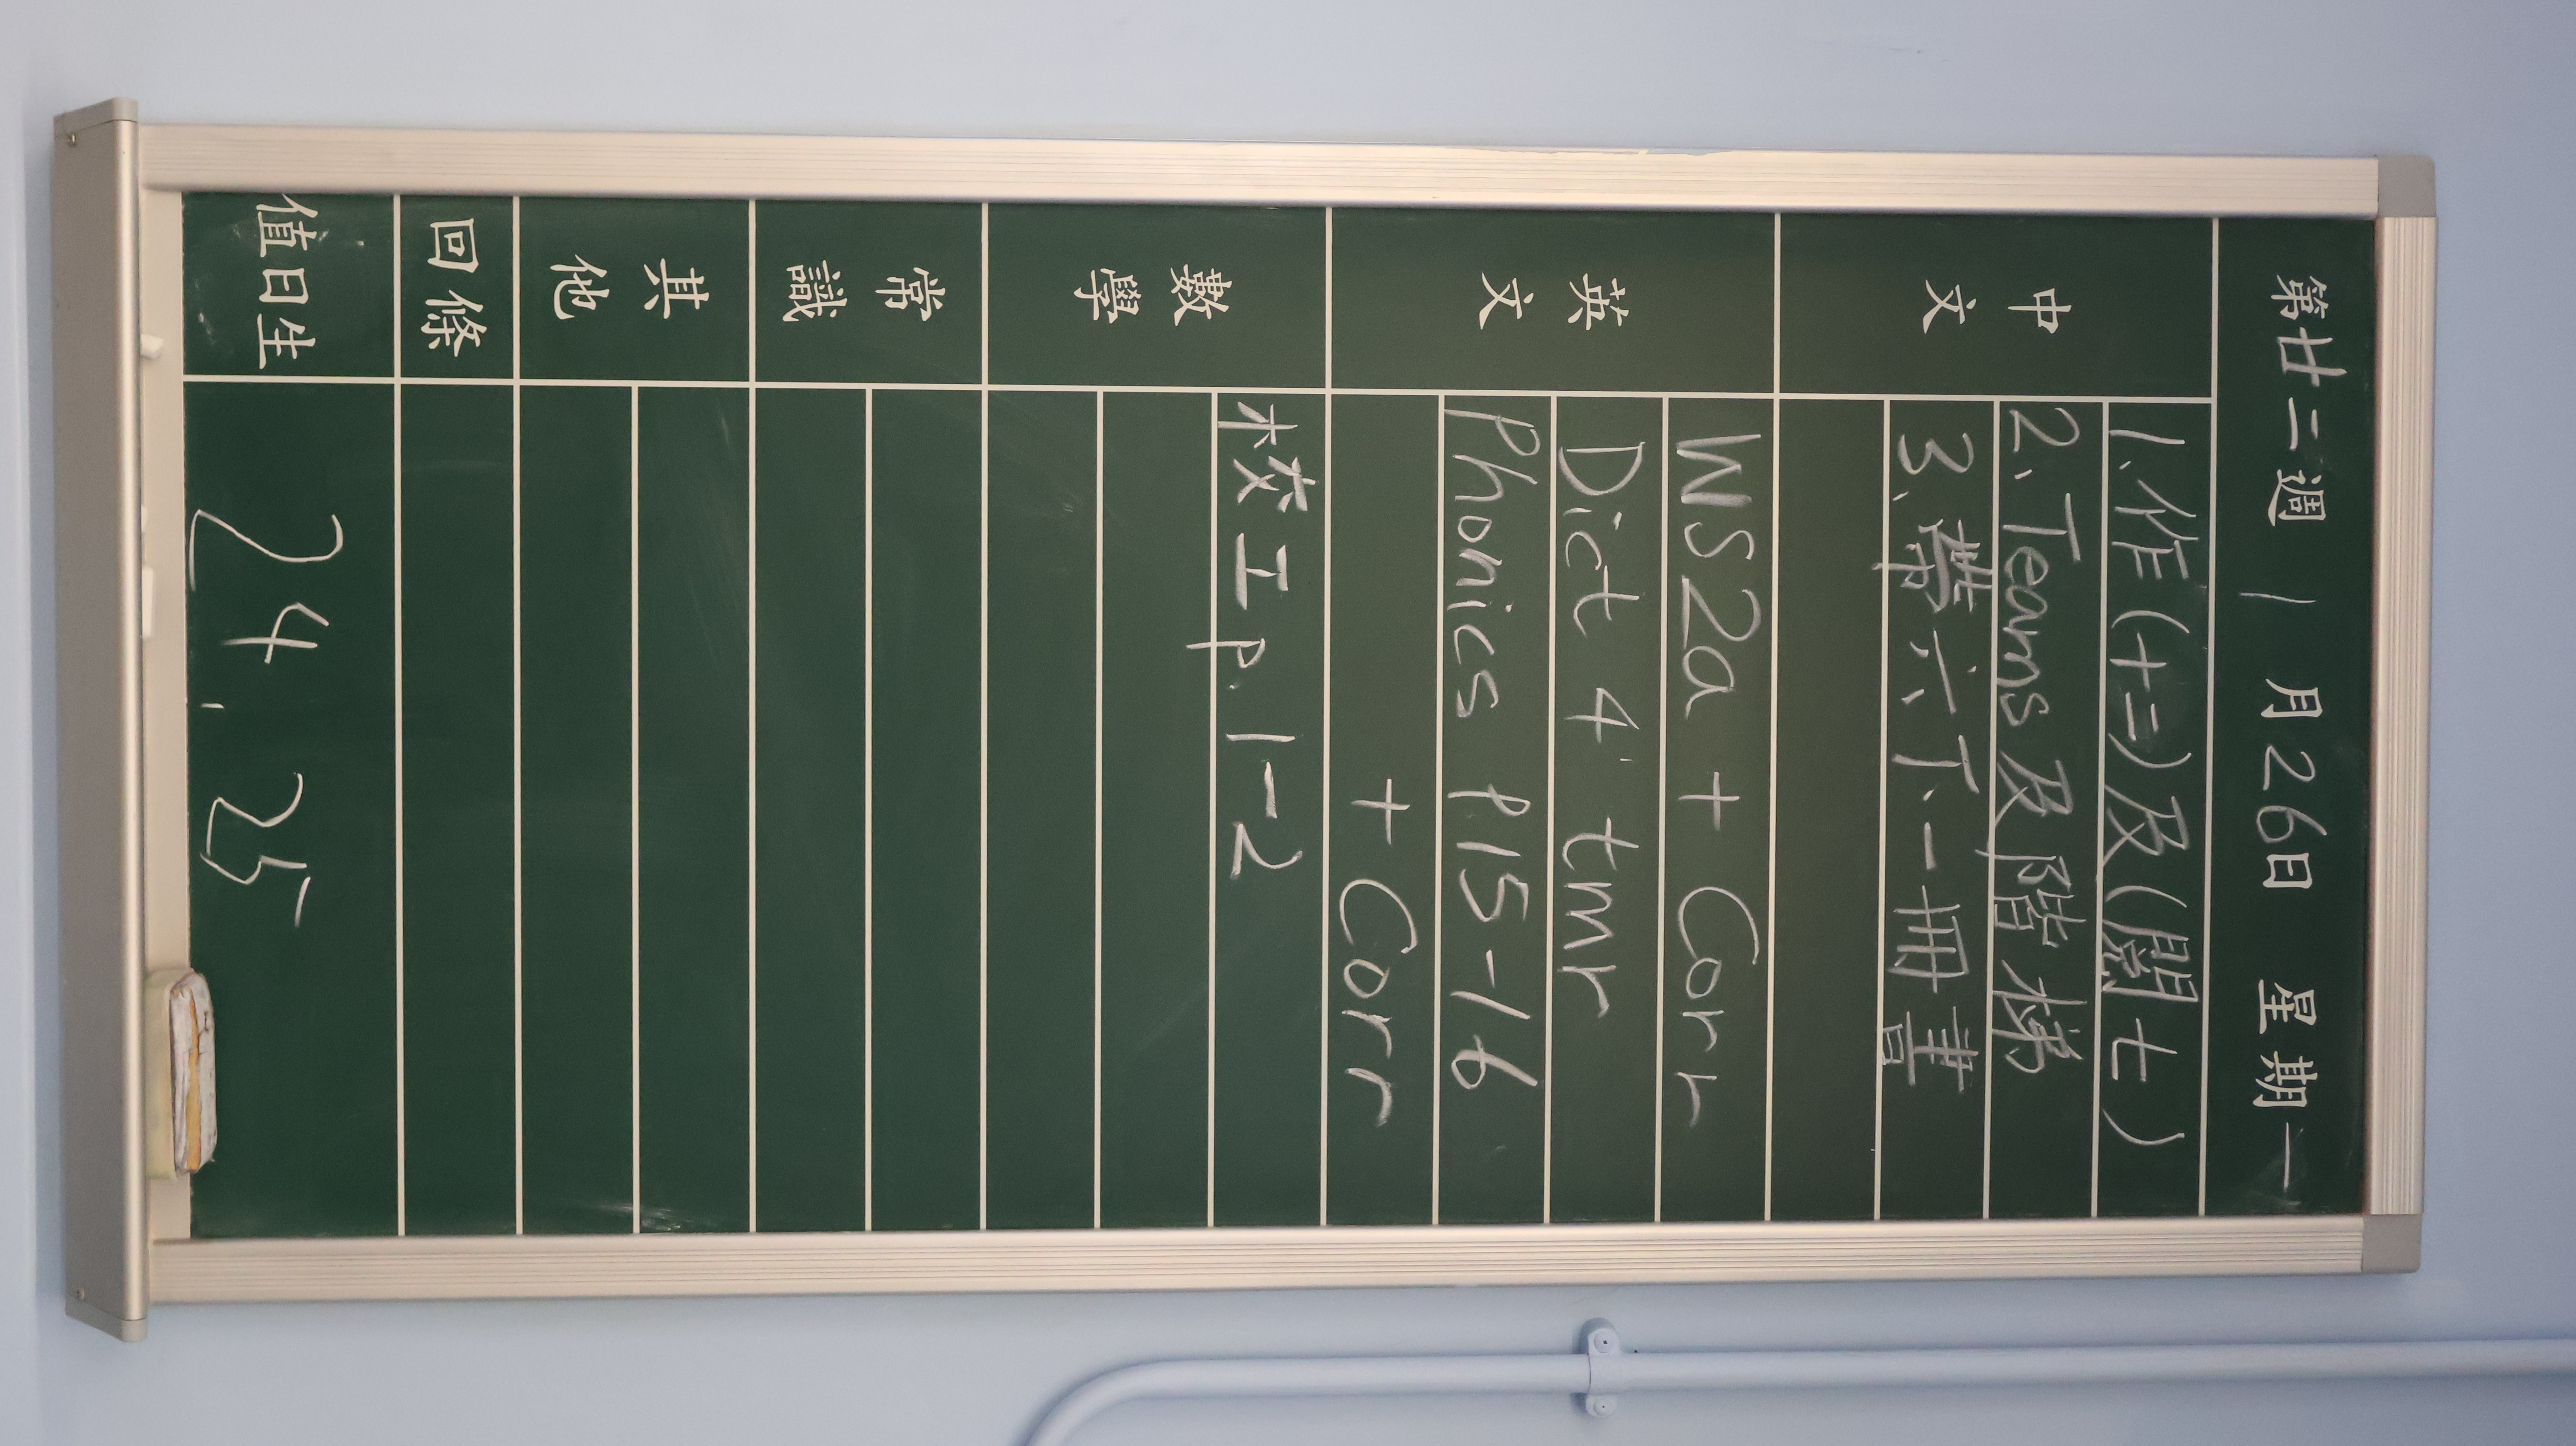 第廿二週 1月26日 星期一
中文
1.作(十二)及(閱七)
2.Teams及階梯
3.帶六下一冊書
英文
WS2a + Corr
Dict 4' tmr
Phonics P15-16
+ Corr
數學
校工 p.1-2
常識
其他
回條
值日生 24, 25